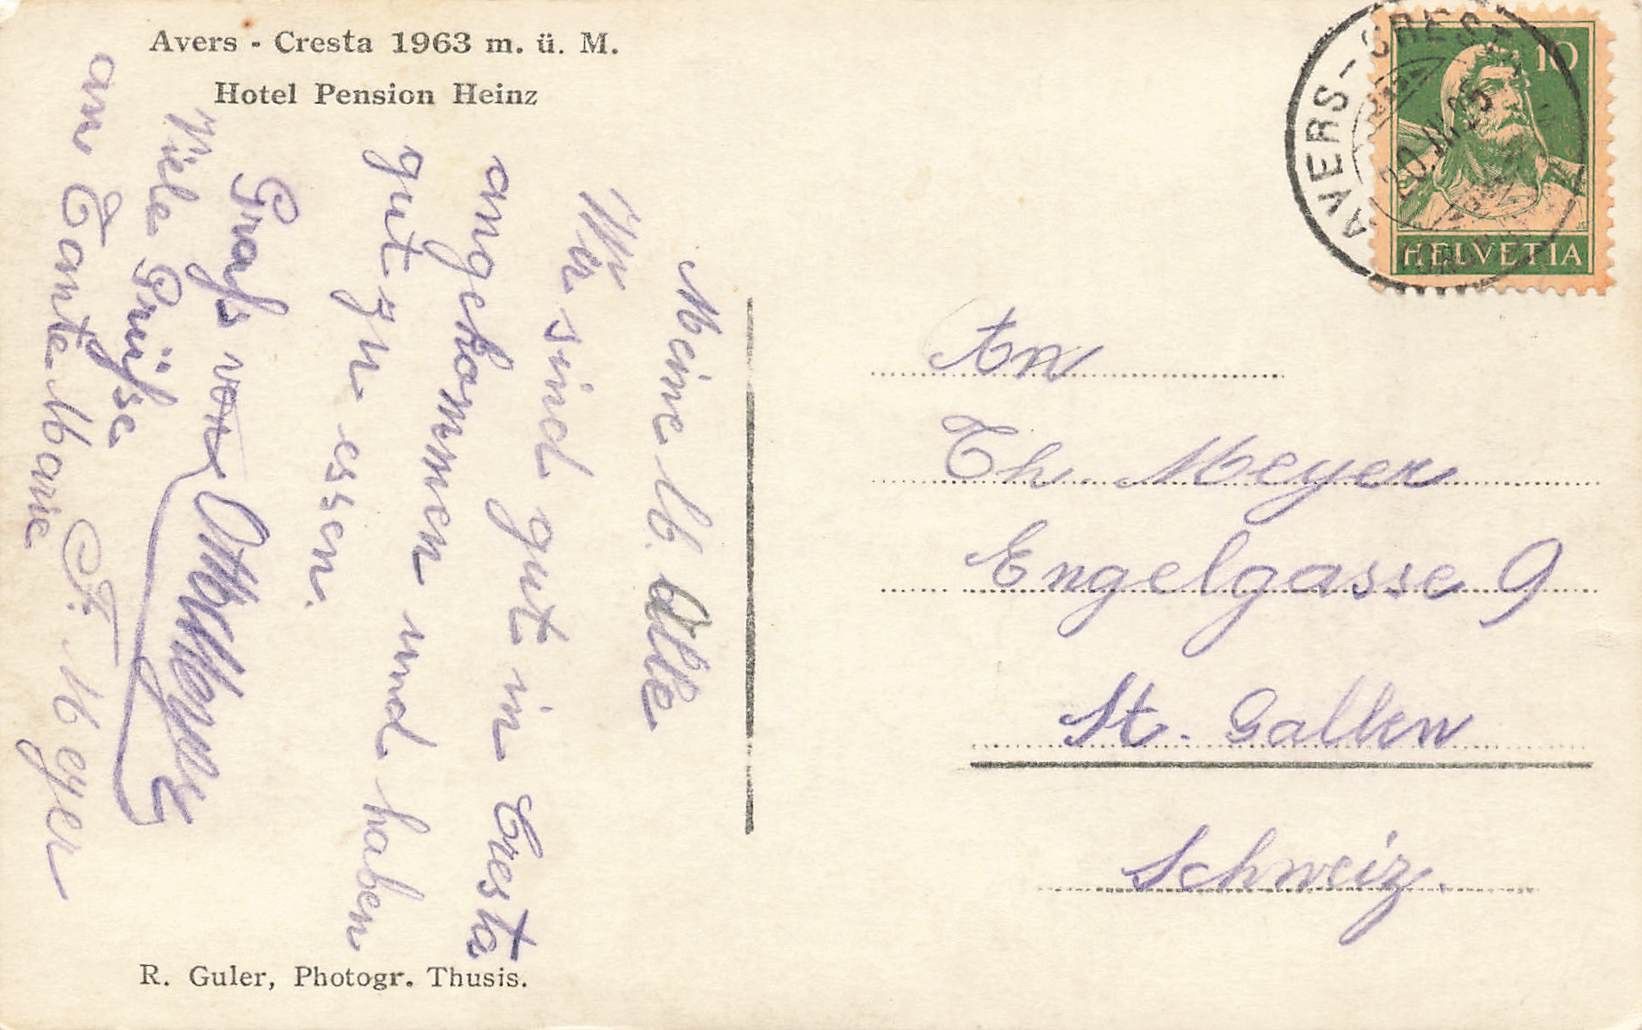 Avers - Cresta 1963 m. ü. M.
Hotel Pension Heinz
Meine lb. Alle
Wir sind gut in Cresta
angekommen und haben
gut zu essen.
Gruss von Otto Meyer
Viele Grüsse
an Tante Marie
F. Meyer
R. Guler, Photogr. Thusis.
AVERS-CRESTA
HELVETIA
10
An
Th. Meyer
Engelgasse 9
St. Gallen
Schweiz.